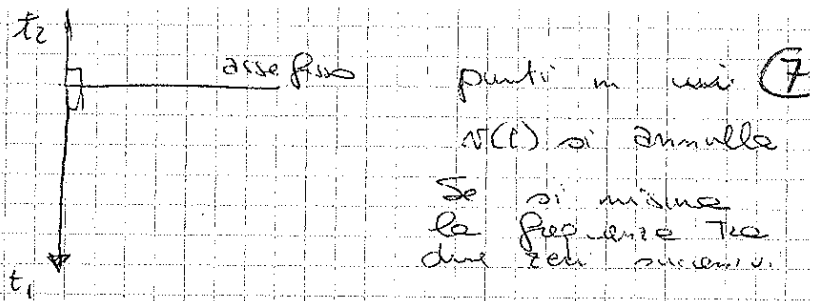 t2
asse fisso
punti in cui 7
v(t) si annulla
Se si misura
la frequenza tra
due zeri successivi
t1